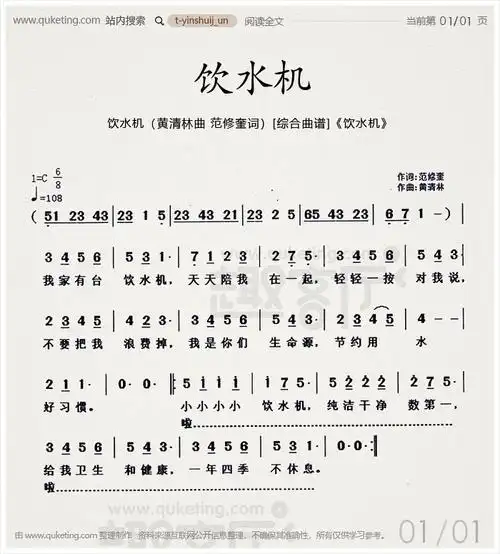 www.quketing.com 站内搜索 t-yinshuij_un 阅读全文 当前第 01/01 页
饮水机
饮水机（黄清林曲 范修奎词）[综合曲谱]《饮水机》
1=C 6/8
♩=108
作词:范修奎
作曲:黄清林
( 51 23 43 | 23 1 5 | 23 43 21 | 23 2 5 | 65 43 23 | 6 7 1 - ) |
3 4 5 6 | 5 3 1· | 7 1 2 3 | 2 7 5· | 3 4 5 6 | 5 4 3· |
我家有台 饮水机，天天陪我 在一起，轻轻一按 对我说，
2 3 4 5 | 4 2 3· | 3 4 5 6 | 5 4 3· | 2 3 4 5 | 4 - - |
不要把我 浪费掉，我是你们 生命源，节约用 水
2 1 1· | 0· 0· |: 5 i i i | i 7 5· | 5 2 2 2 | 2 1 2· |
好习惯。 小小小小 饮水机，纯洁干净 数第一，
啦
3 4 5 6 | 5 4 3· | 3 4 5 6 | 5 3 1· | 0· 0· :|
给我卫生 和健康，一年四季 不休息。
啦
www.quketing.com
趣客厅
由 www.quketing.com 整理制作 资料来源互联网公开信息整理，不确保其准确性，所有仅供学习参考。 01/01